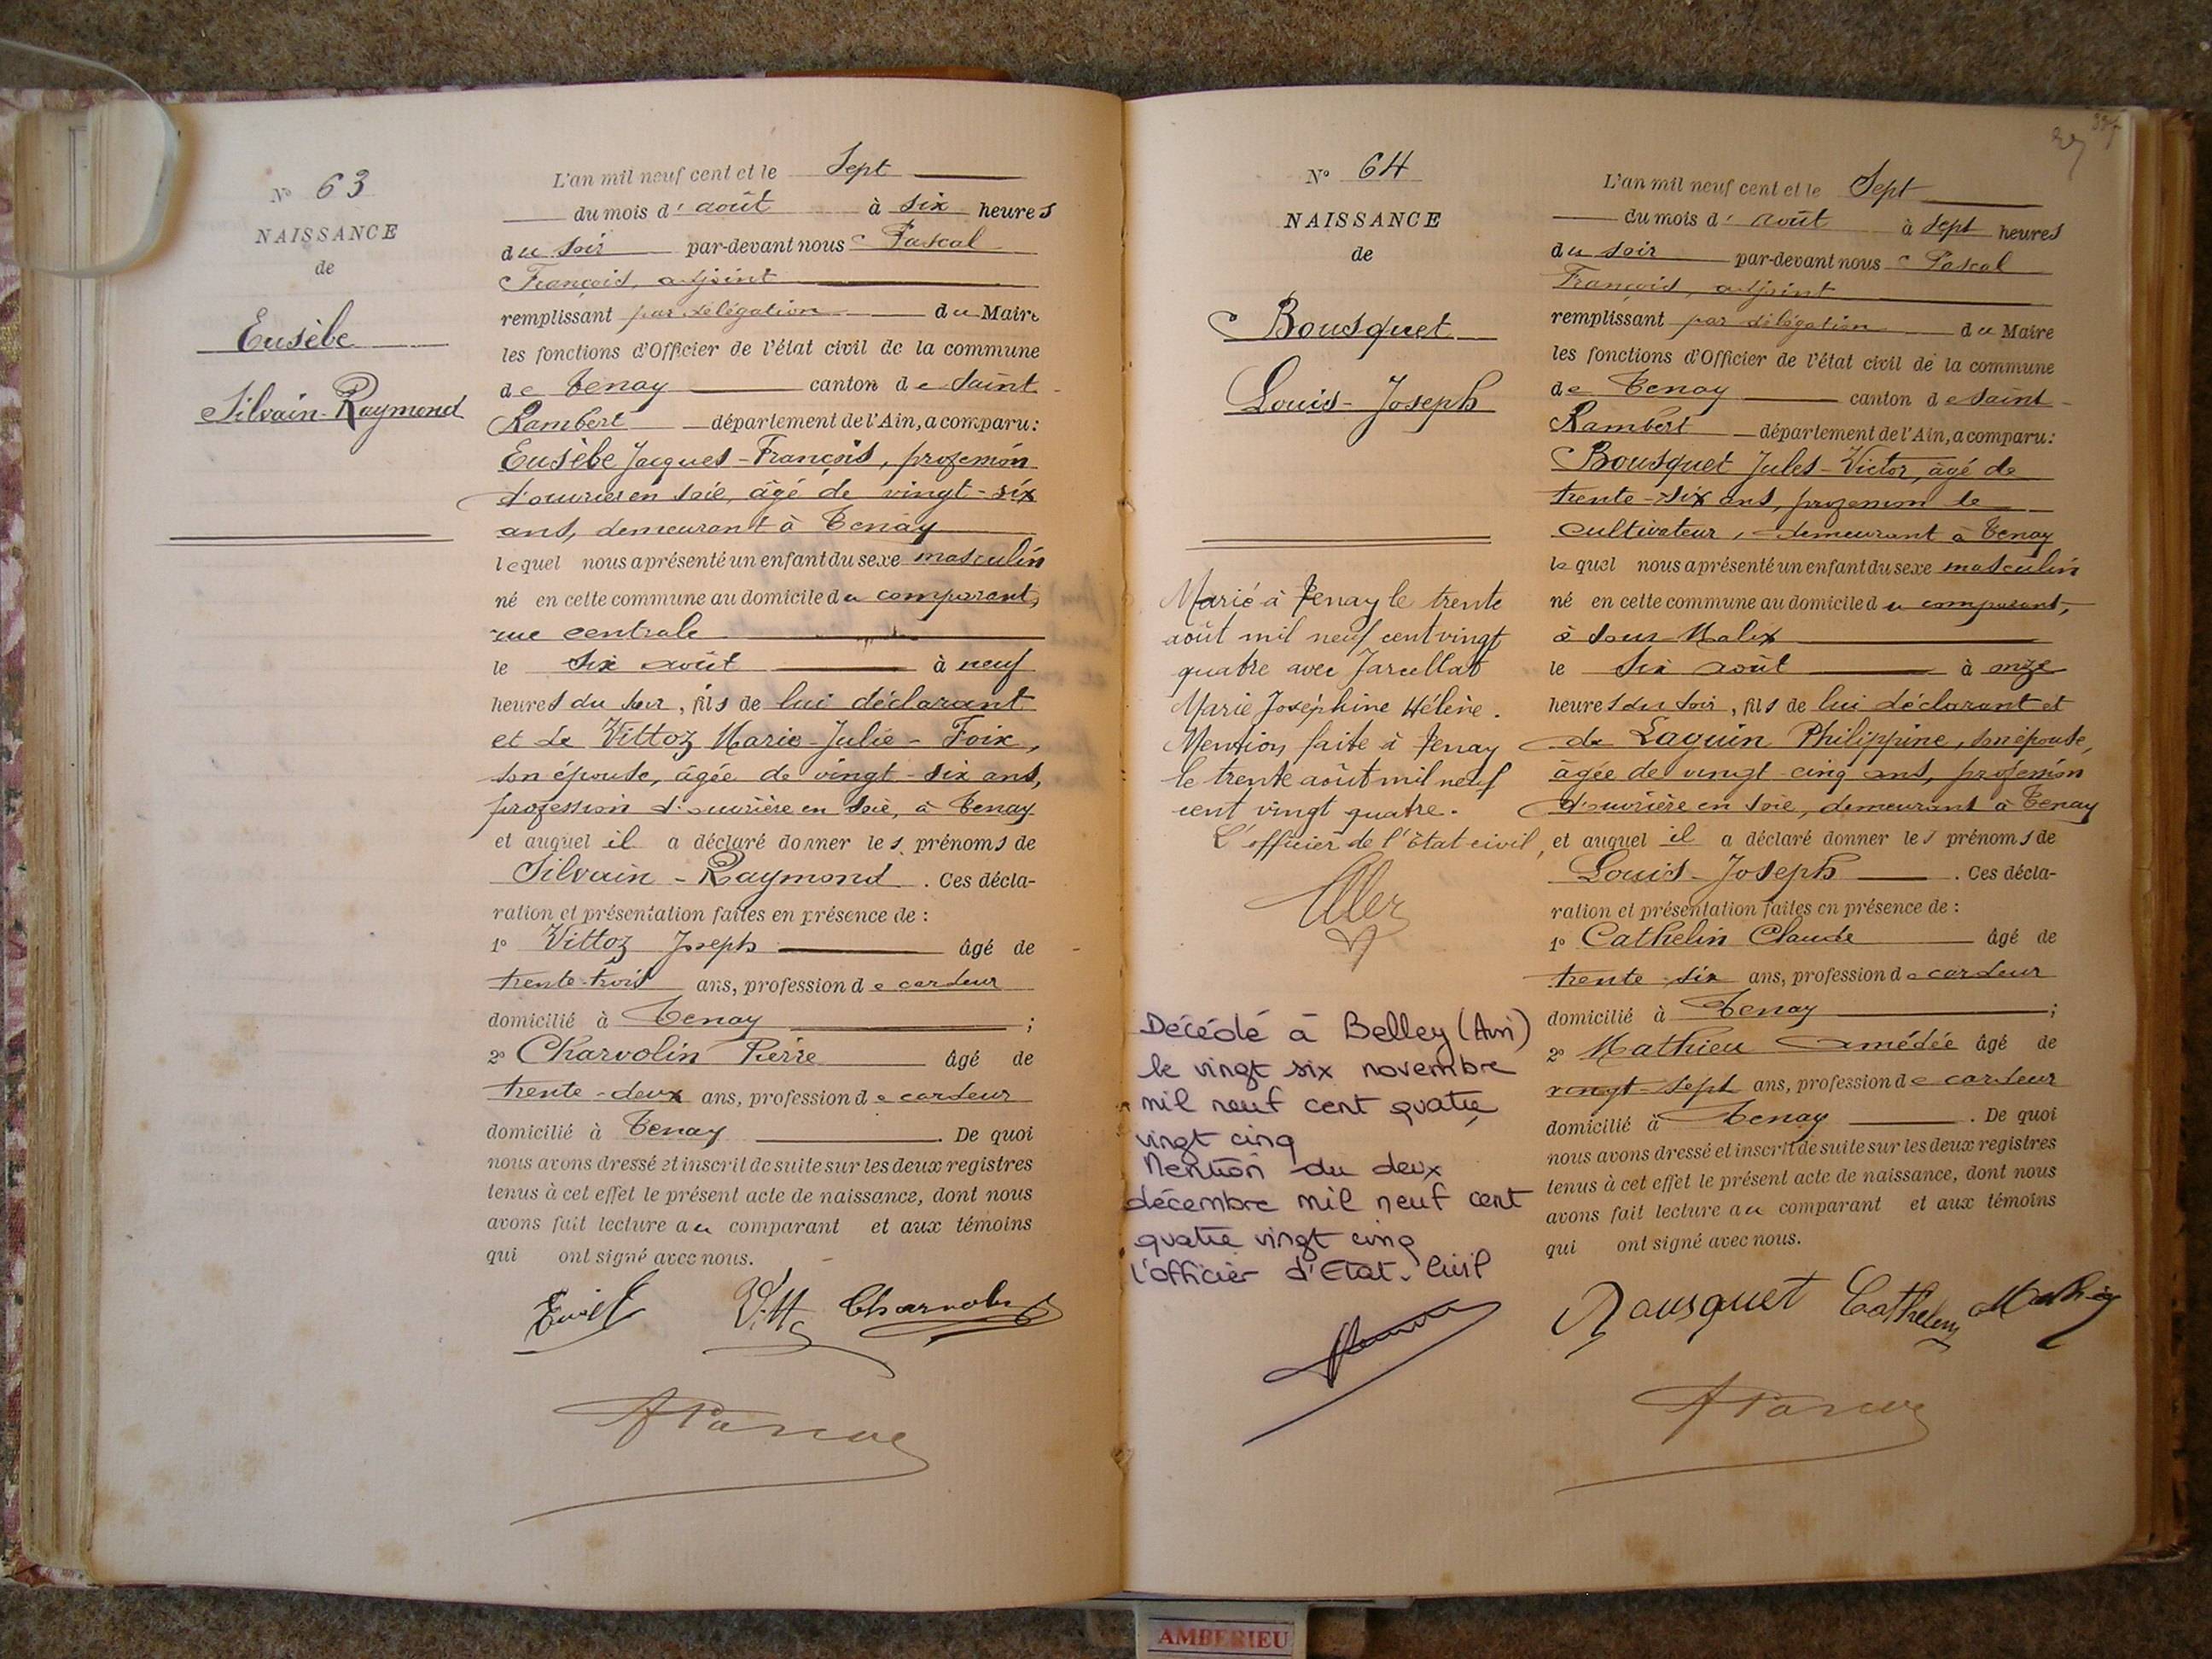 N° 63
NAISSANCE
de
Eusèbe
Silvain-Raymond
L'an mil neuf cent et le Sept
du mois d' août à six heures
du soir par-devant nous Pascal
François, adjoint
remplissant par délégation du Maire
les fonctions d'Officier de l'état civil de la commune
de Tenay canton de Saint-
Rambert département de l'Ain, a comparu:
Eusèbe Jacques-François, profession
d'ouvrier en soie, âgé de vingt-six
ans, demeurant à Tenay
lequel nous a présenté un enfant du sexe masculin
né en cette commune au domicile du comparant,
rue centrale
le six août à neuf
heures du soir, fils de lui déclarant
et de Vittoz Marie-Julie-Foix,
son épouse, âgée de vingt-six ans,
profession d'ouvrière en soie, à Tenay
et auquel il a déclaré donner les prénoms de
Silvain-Raymond. Ces décla-
ration et présentation faites en présence de :
1° Vittoz Joseph âgé de
trente-trois ans, profession de cardeur
domicilié à Tenay ;
2° Charvolin Pierre âgé de
trente-deux ans, profession de cardeur
domicilié à Tenay. De quoi
nous avons dressé et inscrit de suite sur les deux registres
tenus à cet effet le présent acte de naissance, dont nous
avons fait lecture au comparant et aux témoins
qui ont signé avec nous.
N° 64
NAISSANCE
de
Bousquet
Louis-Joseph
Marié à Tenay le trente
août mil neuf cent vingt
quatre avec Jarcellat
Marie Joséphine Hélène.
Mention faite à Tenay
le trente août mil neuf
cent vingt quatre.
L'officier de l'état civil,
Décédé à Belley (Ain)
le vingt six novembre
mil neuf cent quatre
vingt cinq
Mention du deux
décembre mil neuf cent
quatre vingt cinq
l'officier d'Etat-Civil
L'an mil neuf cent et le Sept
du mois d' août à sept heures
du soir par-devant nous Pascal
François, adjoint
remplissant par délégation du Maire
les fonctions d'Officier de l'état civil de la commune
de Tenay canton de Saint-
Rambert département de l'Ain, a comparu:
Bousquet Jules-Victor, âgé de
trente-six ans, profession de
cultivateur, demeurant à Tenay
lequel nous a présenté un enfant du sexe masculin
né en cette commune au domicile du comparant,
à sous-Malix
le six août à onze
heures du soir, fils de lui déclarant et
de Laguin Philippine, son épouse,
âgée de vingt-cinq ans, profession
d'ouvrière en soie, demeurant à Tenay
et auquel il a déclaré donner les prénoms de
Louis-Joseph. Ces décla-
ration et présentation faites en présence de :
1° Cathelin Claude âgé de
trente-six ans, profession de cardeur
domicilié à Tenay ;
2° Mathieu Amédée âgé de
vingt-sept ans, profession de cardeur
domicilié à Tenay. De quoi
nous avons dressé et inscrit de suite sur les deux registres
tenus à cet effet le présent acte de naissance, dont nous
avons fait lecture au comparant et aux témoins
qui ont signé avec nous.
Bousquet Cathelin Mathieu
AMBERIEU